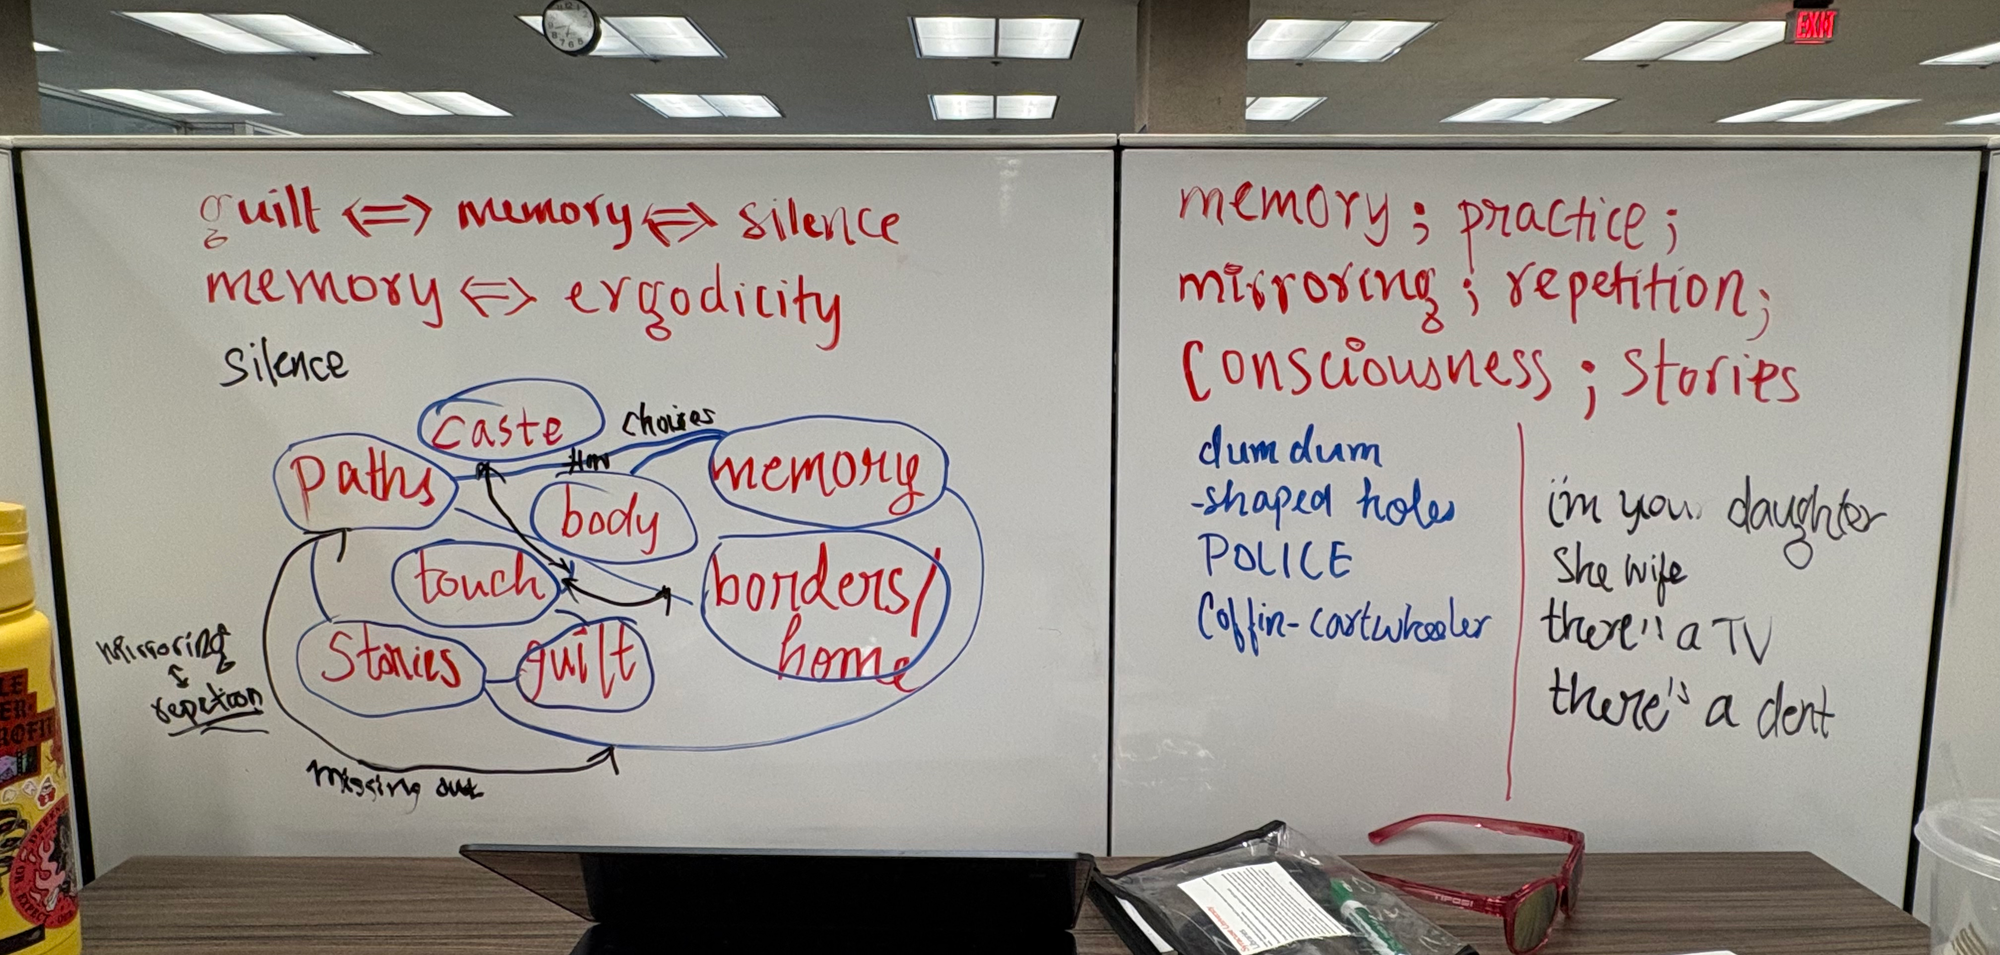 guilt <=> memory <=> silence
memory <=> ergodicity
Silence
caste
choices
Paths
How
memory
body
touch
borders/
home
Stories
guilt
mirroring
repetition
Missing out
memory; practice;
mirroring; repetition;
Consciousness; Stories
dum dum
-shaped holes
POLICE
Coffin-cartwheeler
i'm your daughter
She wife
there's a TV
there's a dent
EXIT
TIFOSI